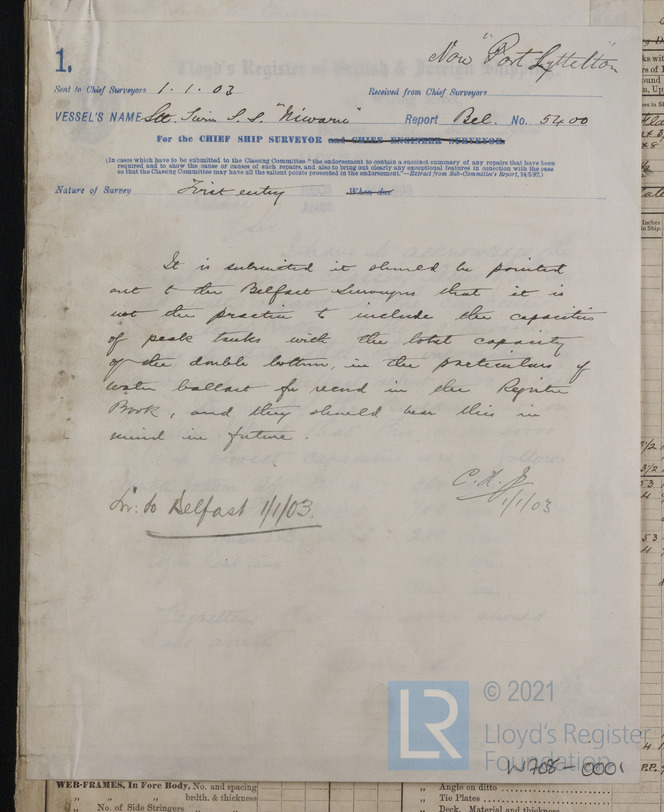 Now "Port Lyttelton"
1.
Lloyd's Register of British & Foreign Shipping.
Sent to Chief Surveyors 1.1.03 Received from Chief Surveyors
VESSEL'S NAME Stl. Twin S.S. "Niwaru" Report Bel. No. 5400
For the CHIEF SHIP SURVEYOR and CHIEF ENGINEER SURVEYOR.
(In cases which have to be submitted to the Classing Committee "the endorsement to contain a succinct summary of any repairs that have been
required and to show the cause or causes of such repairs, and also to bring out clearly any exceptional features in conection with the case
so that the Classing Committee may have all the salient points presented in the endorsement."—Extract from Sub-Committee's Report, 24/5/92.)
Nature of Survey First entry When due
It is submitted it should be pointed
out to the Belfast Surveyors that it is
not the practice to include the capacities
of peak tanks with the total capacity
of the double bottom, in the particulars of
water ballast for record in the Register
Book, and they should bear this in
mind in future.
1/1/03
Lr: to Belfast 1/1/03.
© 2021
LR
Lloyd's Register
Foundation
W708-0001
WEB-FRAMES, In Fore Body, No. and spacing
„ „ „ brdth. & thickness
„ No. of Side Stringers „ „
„ Angle on ditto
„ Tie Plates
„ Deck, Material and thickness